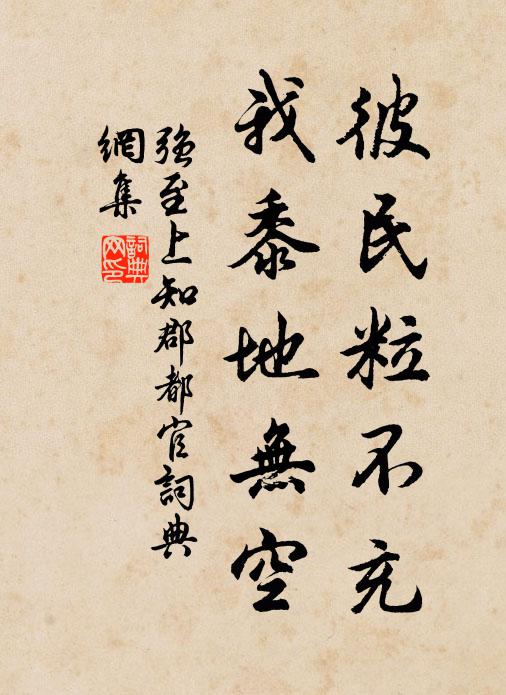 彼民粒不充
我黍地無空
強至上知郡都官詞典
網集
詞典
网印